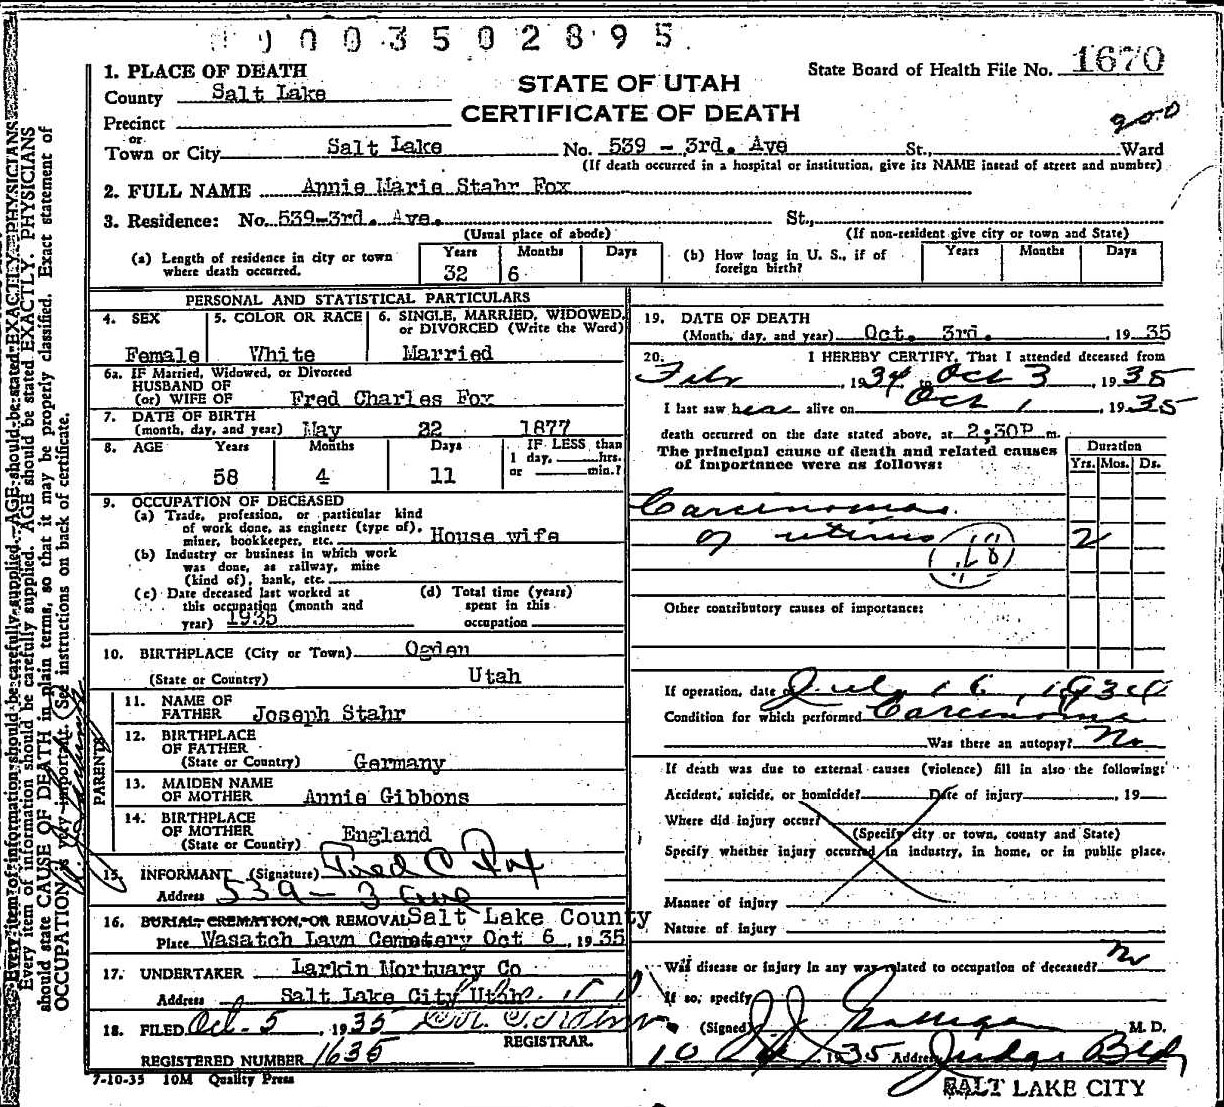 0003502895
1. PLACE OF DEATH
County Salt Lake
STATE OF UTAH
CERTIFICATE OF DEATH
State Board of Health File No. 1670
200
Precinct
or
Town or City Salt Lake No. 539 - 3rd. Ave St., Ward
(If death occurred in a hospital or institution, give its NAME instead of street and number)
2. FULL NAME Annie Marie Stahr Fox
3. Residence: No. 539-3rd. Ave. St.,
(Usual place of abode) (If non-resident give city or town and State)
(a) Length of residence in city or town where death occurred. Years 32 Months 6 Days
(b) How long in U. S., if of foreign birth? Years Months Days
PERSONAL AND STATISTICAL PARTICULARS
4. SEX Female
5. COLOR OR RACE White
6. SINGLE, MARRIED, WIDOWED, or DIVORCED (Write the Word) Married
6a. IF Married, Widowed, or Divorced
HUSBAND OF
(or) WIFE OF Fred Charles Fox
7. DATE OF BIRTH
(month, day, and year) May 22 1877
8. AGE Years 58 Months 4 Days 11 IF LESS than 1 day, hrs. or min.?
9. OCCUPATION OF DECEASED
(a) Trade, profession, or particular kind
of work done, as engineer (type of),
miner, bookkeeper, etc. House wife
(b) Industry or business in which work
was done, as railway, mine
(kind of), bank, etc.
(c) Date deceased last worked at
this occupation (month and
year) 1935
(d) Total time (years)
spent in this
occupation
10. BIRTHPLACE (City or Town) Ogden
(State or Country) Utah
PARENTS
11. NAME OF
FATHER Joseph Stahr
12. BIRTHPLACE
OF FATHER
(State or Country) Germany
13. MAIDEN NAME
OF MOTHER Annie Gibbons
14. BIRTHPLACE
OF MOTHER
(State or Country) England
15. INFORMANT (Signature) Fred C Fox
Address 539 - 3 Ave
16. BURIAL, CREMATION, OR REMOVAL Salt Lake County
Place Wasatch Lawn Cemetery Oct 6, 1935
17. UNDERTAKER Larkin Mortuary Co
Address Salt Lake City Utah
18. FILED Oct-5, 1935
REGISTRAR.
REGISTERED NUMBER 1635
7-10-35 10M Quality Press
19. DATE OF DEATH
(Month, day, and year) Oct. 3rd. , 1935
20. I HEREBY CERTIFY, That I attended deceased from
Feb , 1934, to Oct 3, 1935
I last saw her alive on Oct 1, 1935
death occurred on the date stated above, at 2;30P m.
The principal cause of death and related causes
of importance were as follows:
Duration
Yrs. Mos. Ds.
Carcinoma
of uterus 2
Other contributory causes of importance:
If operation, date of July 16, 1934
Condition for which performed Carcinoma
Was there an autopsy? No
If death was due to external causes (violence) fill in also the following:
Accident, suicide, or homicide? Date of injury , 19
Where did injury occur?
(Specify city or town, county and State)
Specify whether injury occurred in industry, in home, or in public place.
Manner of injury
Nature of injury
Was disease or injury in any way related to occupation of deceased? No
If so, specify
(Signed) M. D.
10 , 1935 Address Judge Bldg
SALT LAKE CITY
Every item of information should be carefully supplied. AGE should be stated EXACTLY. PHYSICIANS
should state CAUSE OF DEATH in plain terms, so that it may be properly classified. Exact statement of
OCCUPATION is very important. (See instructions on back of certificate.